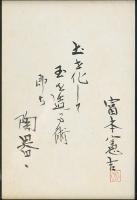 富本憲吉
土を化して
玉を 術
即ち
陶器